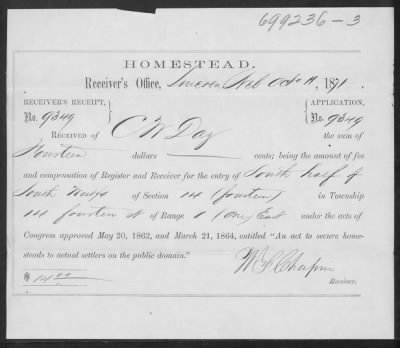 699236-3
HOMESTEAD.
Receiver's Office, Lincoln Neb Oct 11, 1871.
RECEIVER'S RECEIPT, APPLICATION,
No. 9349 No. 9349
RECEIVED of C W Day the sum of
Fourteen dollars cents; being the amount of fee
and compensation of Register and Receiver for the entry of South half of
South of Section 14 (fourteen) in Township
14 fourteen N of Range 1 (One) East under the acts of
Congress approved May 20, 1862, and March 21, 1864, entitled "An act to secure home-
steads to actual settlers on the public domain."
$ 14.00 Receiver.